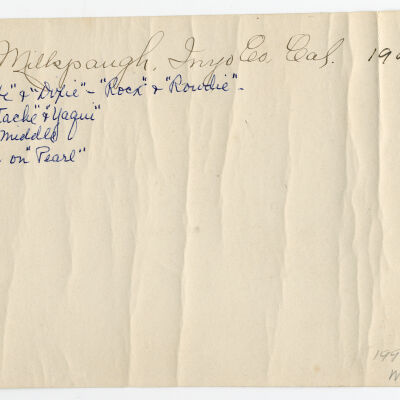 Millspaugh, Inyo Co. Cal. 19
" & "Dixie" - "Rock" & "Rowdie" -
" & "Yaqui"
middle
on "Pearl"
199